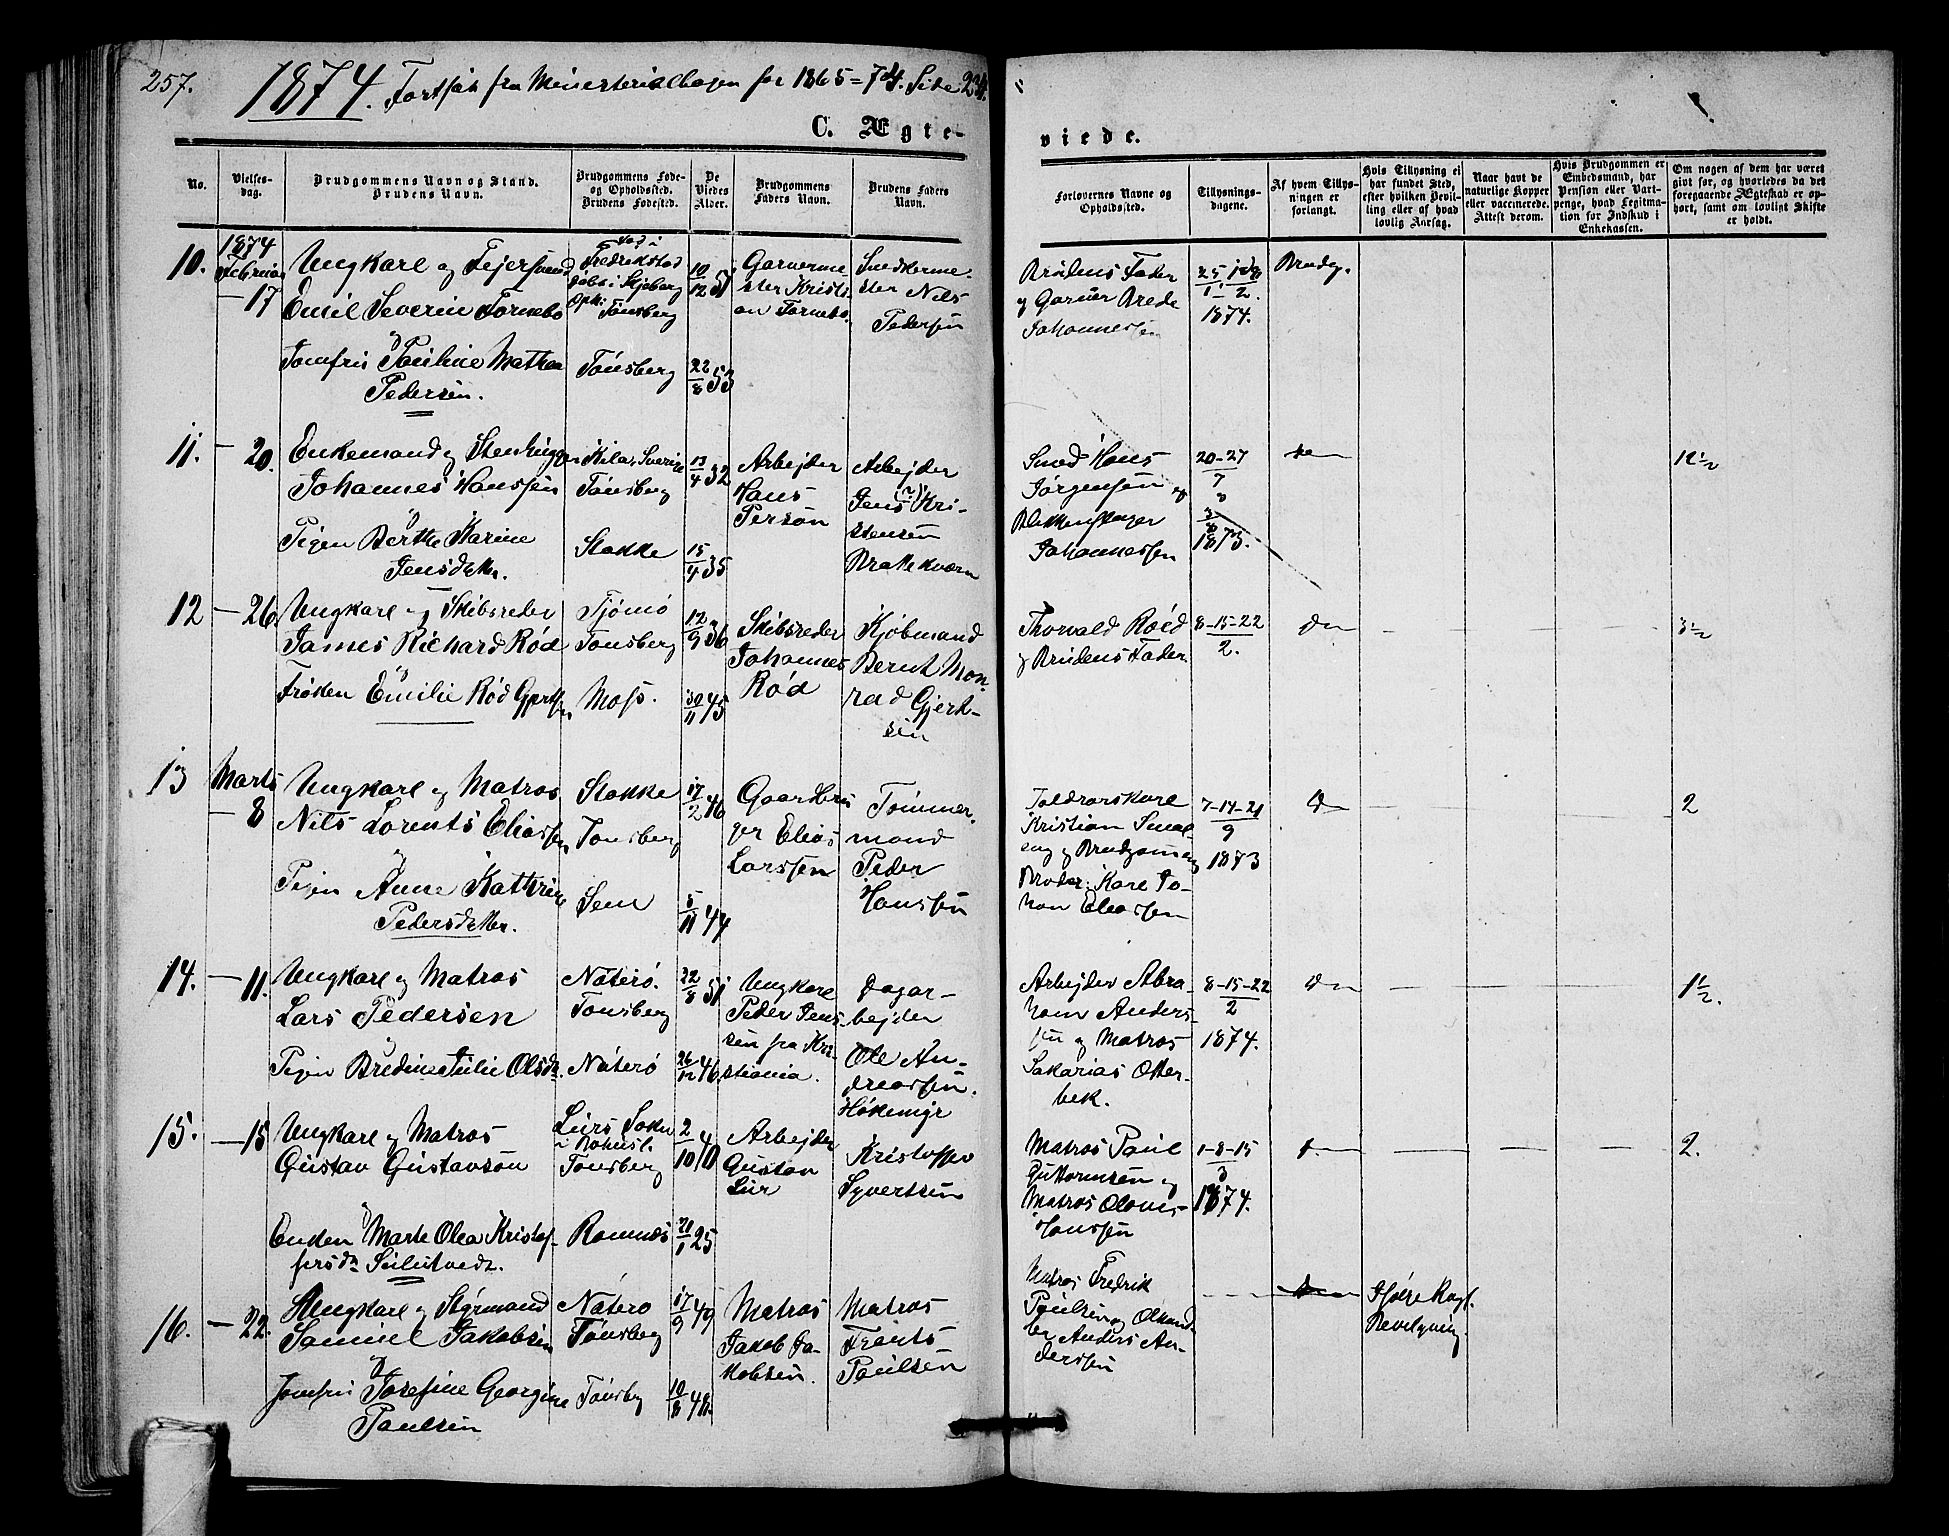 257.
1874. Fortsat fra Ministerialbogen for 1865-74. Side 234.
C. Ægteviede.
No.
Vielsesdag.
Brudgommens Navn og Stand.
Brudens Navn.
Brudgommens Føde- og Opholdssted.
Brudens Fødested.
De Viedes Alder.
Brudgommens Faders Navn.
Brudens Faders Navn.
Forlovernes Navne og Opholdssted.
Tillysningsdagene.
Af hvem Tillysningen er forlangt.
Hvis Tillysning ei har fundet Sted, efter hvilken Bevilling eller af hvad lovlig Aarsag.
Naar havt de naturlige Kopper eller vaccinerede. Attest derom.
Hvis Brudgommen er Embedsmand, har Pension eller Vartpenge, hvad Legitimation for Indskud i Enkekassen.
Om nogen af dem har været givt før, og hvorledes da det foregaaende Ægteskab er ophørt, samt om lovligt Skifte er holdt.
1874
10. Februar
17
Ungkarl og Fejersvend
Emil Severin Fornebo
Jomfru Pauline Mathea
Pedersen.
Fredrikstad
Tønsberg
Tønsberg
10/12 51
22/8 53
Garverme-
ster Kristi-
an Fornebo.
Snedkerme-
ster Nils
Pedersen
Brudens Fader
og Garver Brede
Johannessen
1874.
Brudg.
11. - 20.
Enkemand og Stenhugger
Johannes Hanssen
Pigen Berthe Karine
Jensdatter.
Kila, Sverige
Tønsberg
Stokke
13/4 32
15/4 35
Arbejder
Hans
Person
Arbejder
Jens Kri-
stensen
Brattekværn
Smed Hans
Jørgensen og
Blikkenslager
Johannessen
20-27
7
3/8
1873.
12 - 26.
Ungkarl og Skibsreder
James Richard Rød
Frøken Emilie Rød Gjertsen
Tjømø
Tønsberg
Moss.
12/9 36
30/11 45
Skibsreder
Johannes
Rød
Kjøbmand
Bernt Mon-
rad Gjert-
sen
Thorvald Røed
og Brudens Fader.
8-15-22
2.
13 Marts
- 8
Ungkarl og Matros
Nils Lorents Eliassen
Pigen Anne Kathrine
Pedersdatter.
Stokke
Tønsberg
Sem
17/2 46
5/11 44
Gaardbru
ger Elias
Larssen
Tømmer-
mand
Peder
Hanssen
Kristian
og Brudgommens
Broder: Karl Jo-
han Eliassen
7-14-21
9
1873
2
14. - 11.
Ungkarl og Matros
Lars Pedersen
Pigen Bredine Julie Olsdr.
Nøterø.
Tønsberg
Nøterø
22/8 51
26/12 46
Ungkarl
Peder Jens-
sen fra Kri-
stiania.
Dagar-
bejder
Ole An-
dreassen.
Håkemyr
Arbejder Abra-
ham Anders-
sen og Matros
Sakarias Otter-
bek.
8-15-22
2
1874.
1 1/2.
15. - 15
Ungkarl og Matros
Gustav Gustavson
Enken Marte Olea Kristof-
fersdr.
Lurs Sokn
i Bohusl.
Tønsberg
Ramnæs
2/10 40
21/1 25
Arbejder
Gustav
Lur
Kristoffer
Syvertsen
Matros Paul
Guttormsen og
Matros Olaus
Hanssen
1-8-15
3
1874.
2.
16. - 22.
Ungkarl og Styrmand
Samuel Jakobsen
Jomfru Josefine Georgine
Paulsen
Nøterø
Tønsberg
Tønsberg
17/9 49
10/8 48.
Matros
Jakob Ja-
kobsen.
Matros
Frants
Paulsen
Matros Fredrik
Paulsen og
Anders An-
derssen
Bevilgning.